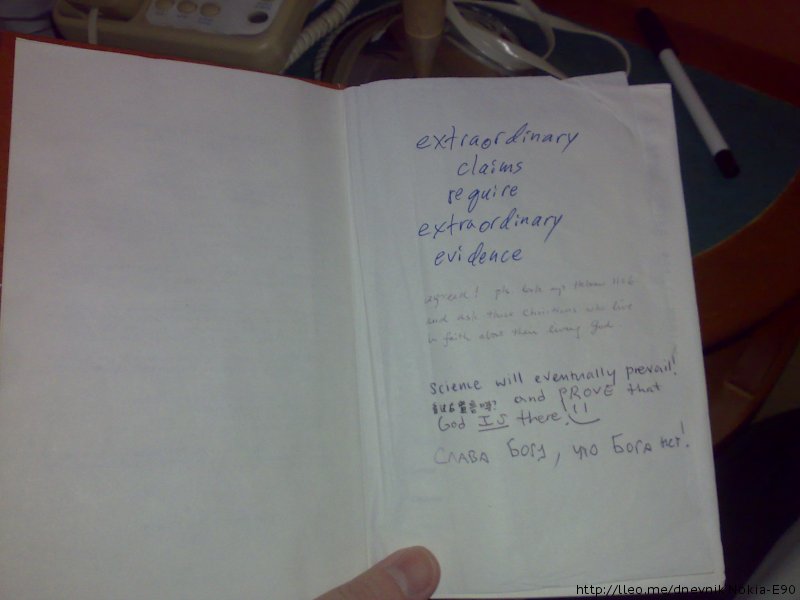 extraordinary
claims
require
extraordinary
evidence
agreed! pls look up Hebrew 11:6
and ask those Christians who live
in faith about their living God.
Science will eventually prevail!
and PROVE that
God IS there!
Слава Богу, что Бога нет!
http://lleo.me/dnevnik Nokia-E90